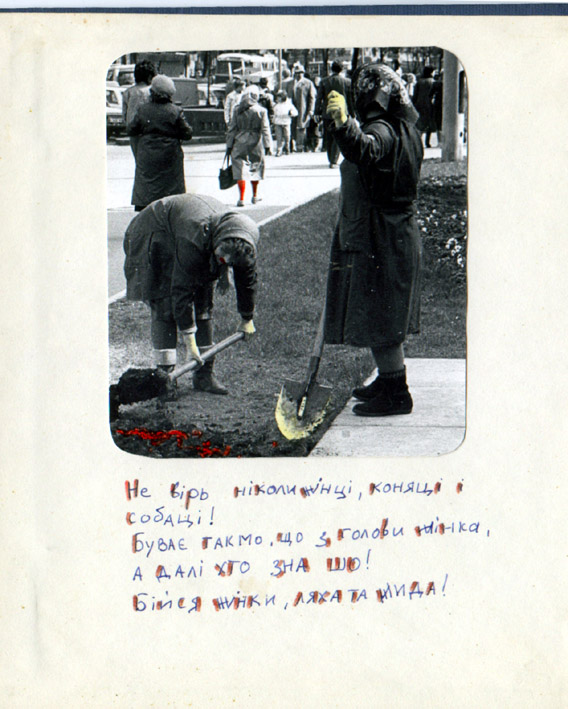 Не вірь ніколи жінці, коняці і
собаці!
Буває такмо, що з голови жінка,
а далі хто зна шо!
Бійся жінки, ляха та жида!